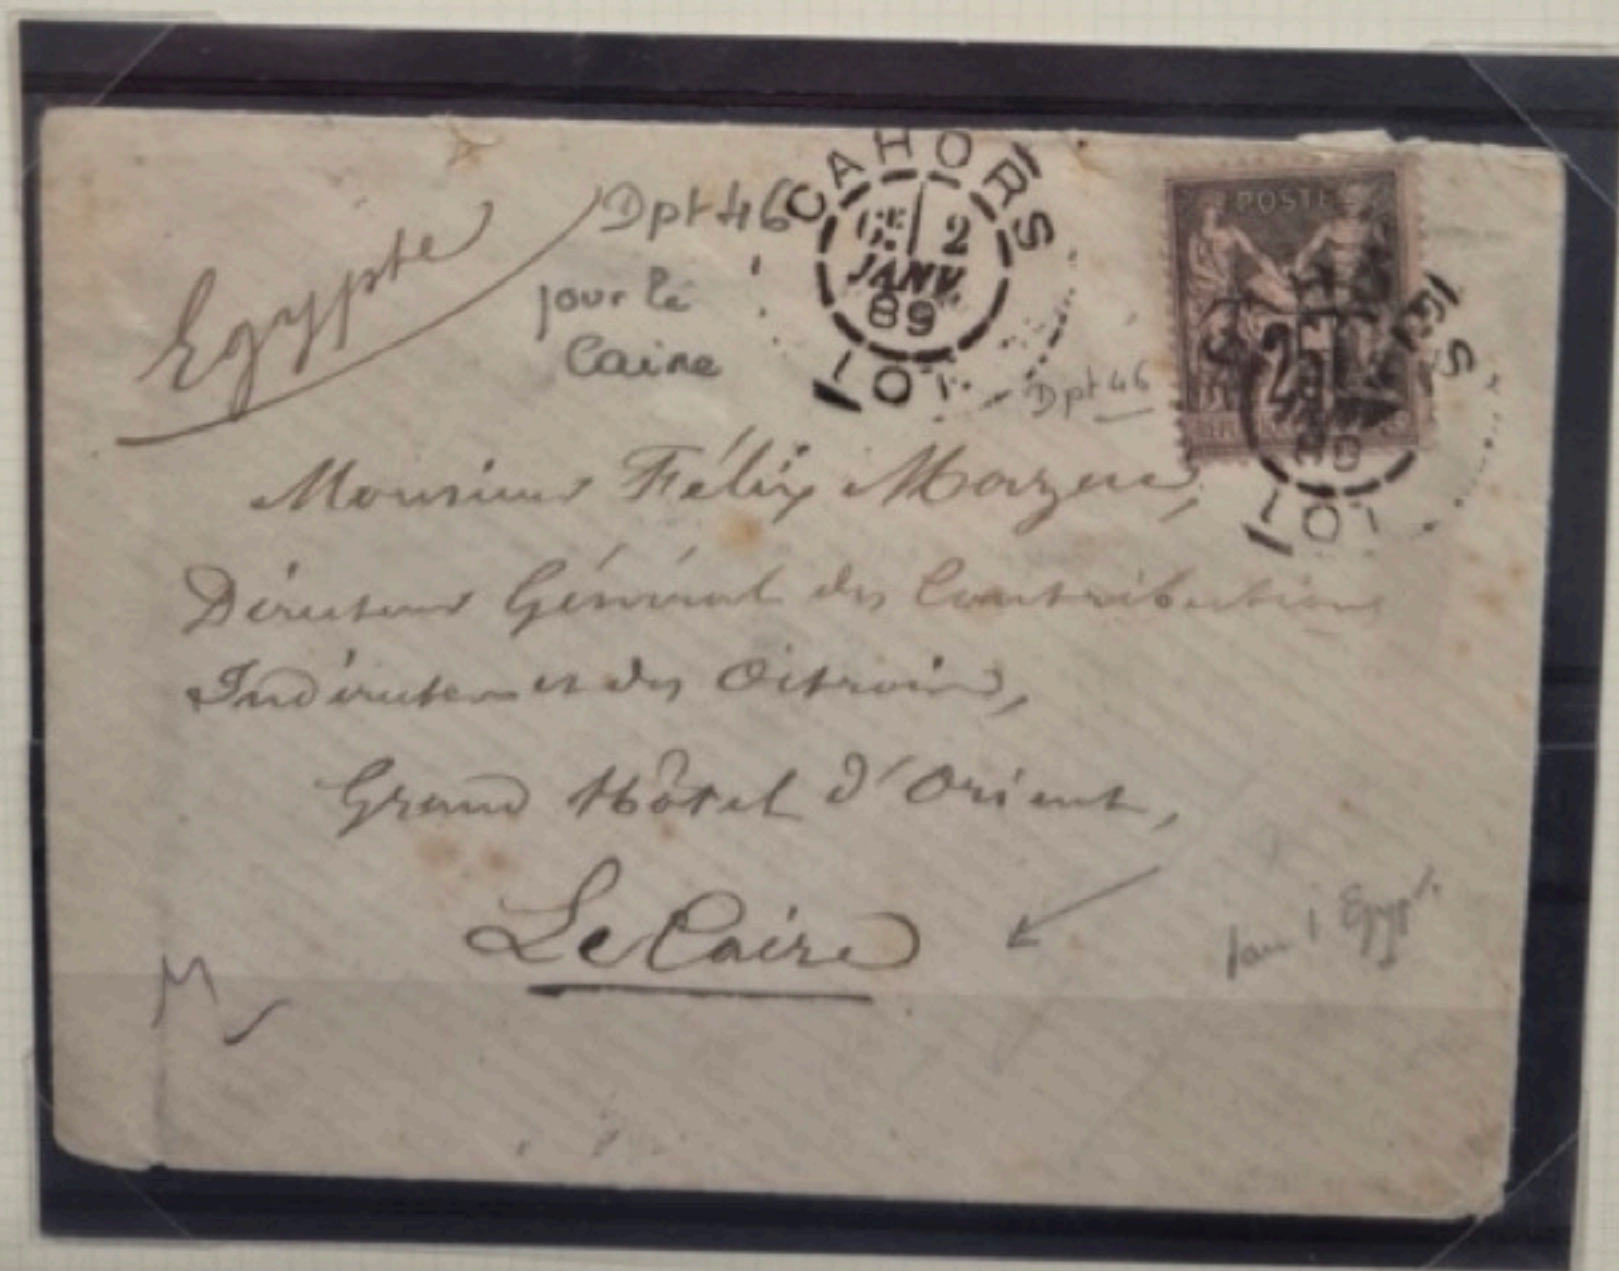 Egypte
Dpt 46
pour le
Caire
CAHORS
6E 2
JANV.
89
LOT
POSTE
CAHORS
2
89
LOT
Dpt 46
Monsieur Félix Mazuc,
Directeur Général des Contributions
Indirectes et des Octrois,
Grand Hôtel d'Orient,
Le Caire